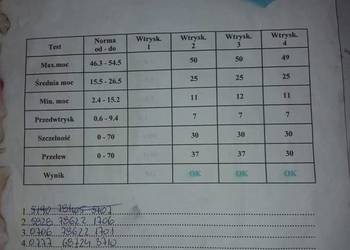 Test Norma od - do Wtrysk. 1 Wtrysk. 2 Wtrysk. 3 Wtrysk. 4
Max.moc 46.3 - 54.5 50 50 49
Średnia moc 15.5 - 26.5 25 25 25
Min. moc 2.4 - 15.2 11 12 11
Przedwtrysk 0.6 - 9.4 7 7 7
Szczelność 0 - 70 30 30 30
Przelew 0 - 70 37 37 30
Wynik OK OK OK
1.
2. 5828 78622 1706
3. 0706 78622 1701
4. 0777 68724 3710